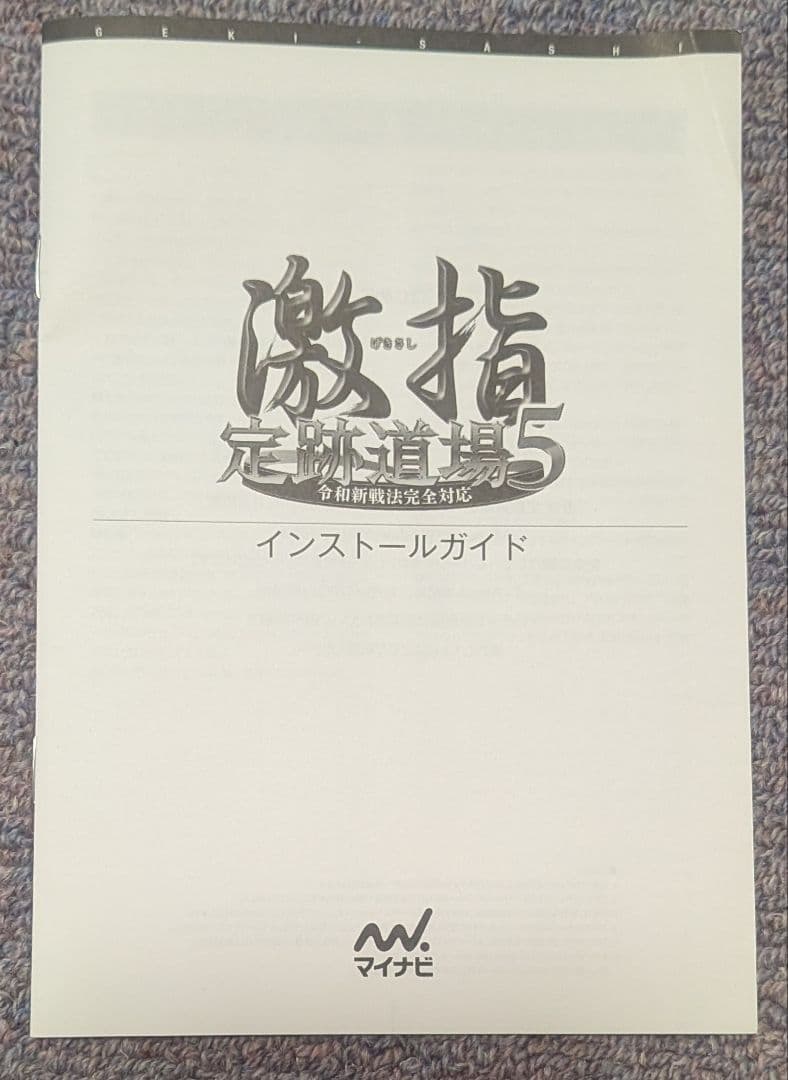 GEKI-SASHI
激指
げきさし
定跡道場5
令和新戦法完全対応
インストールガイド
マイナビ